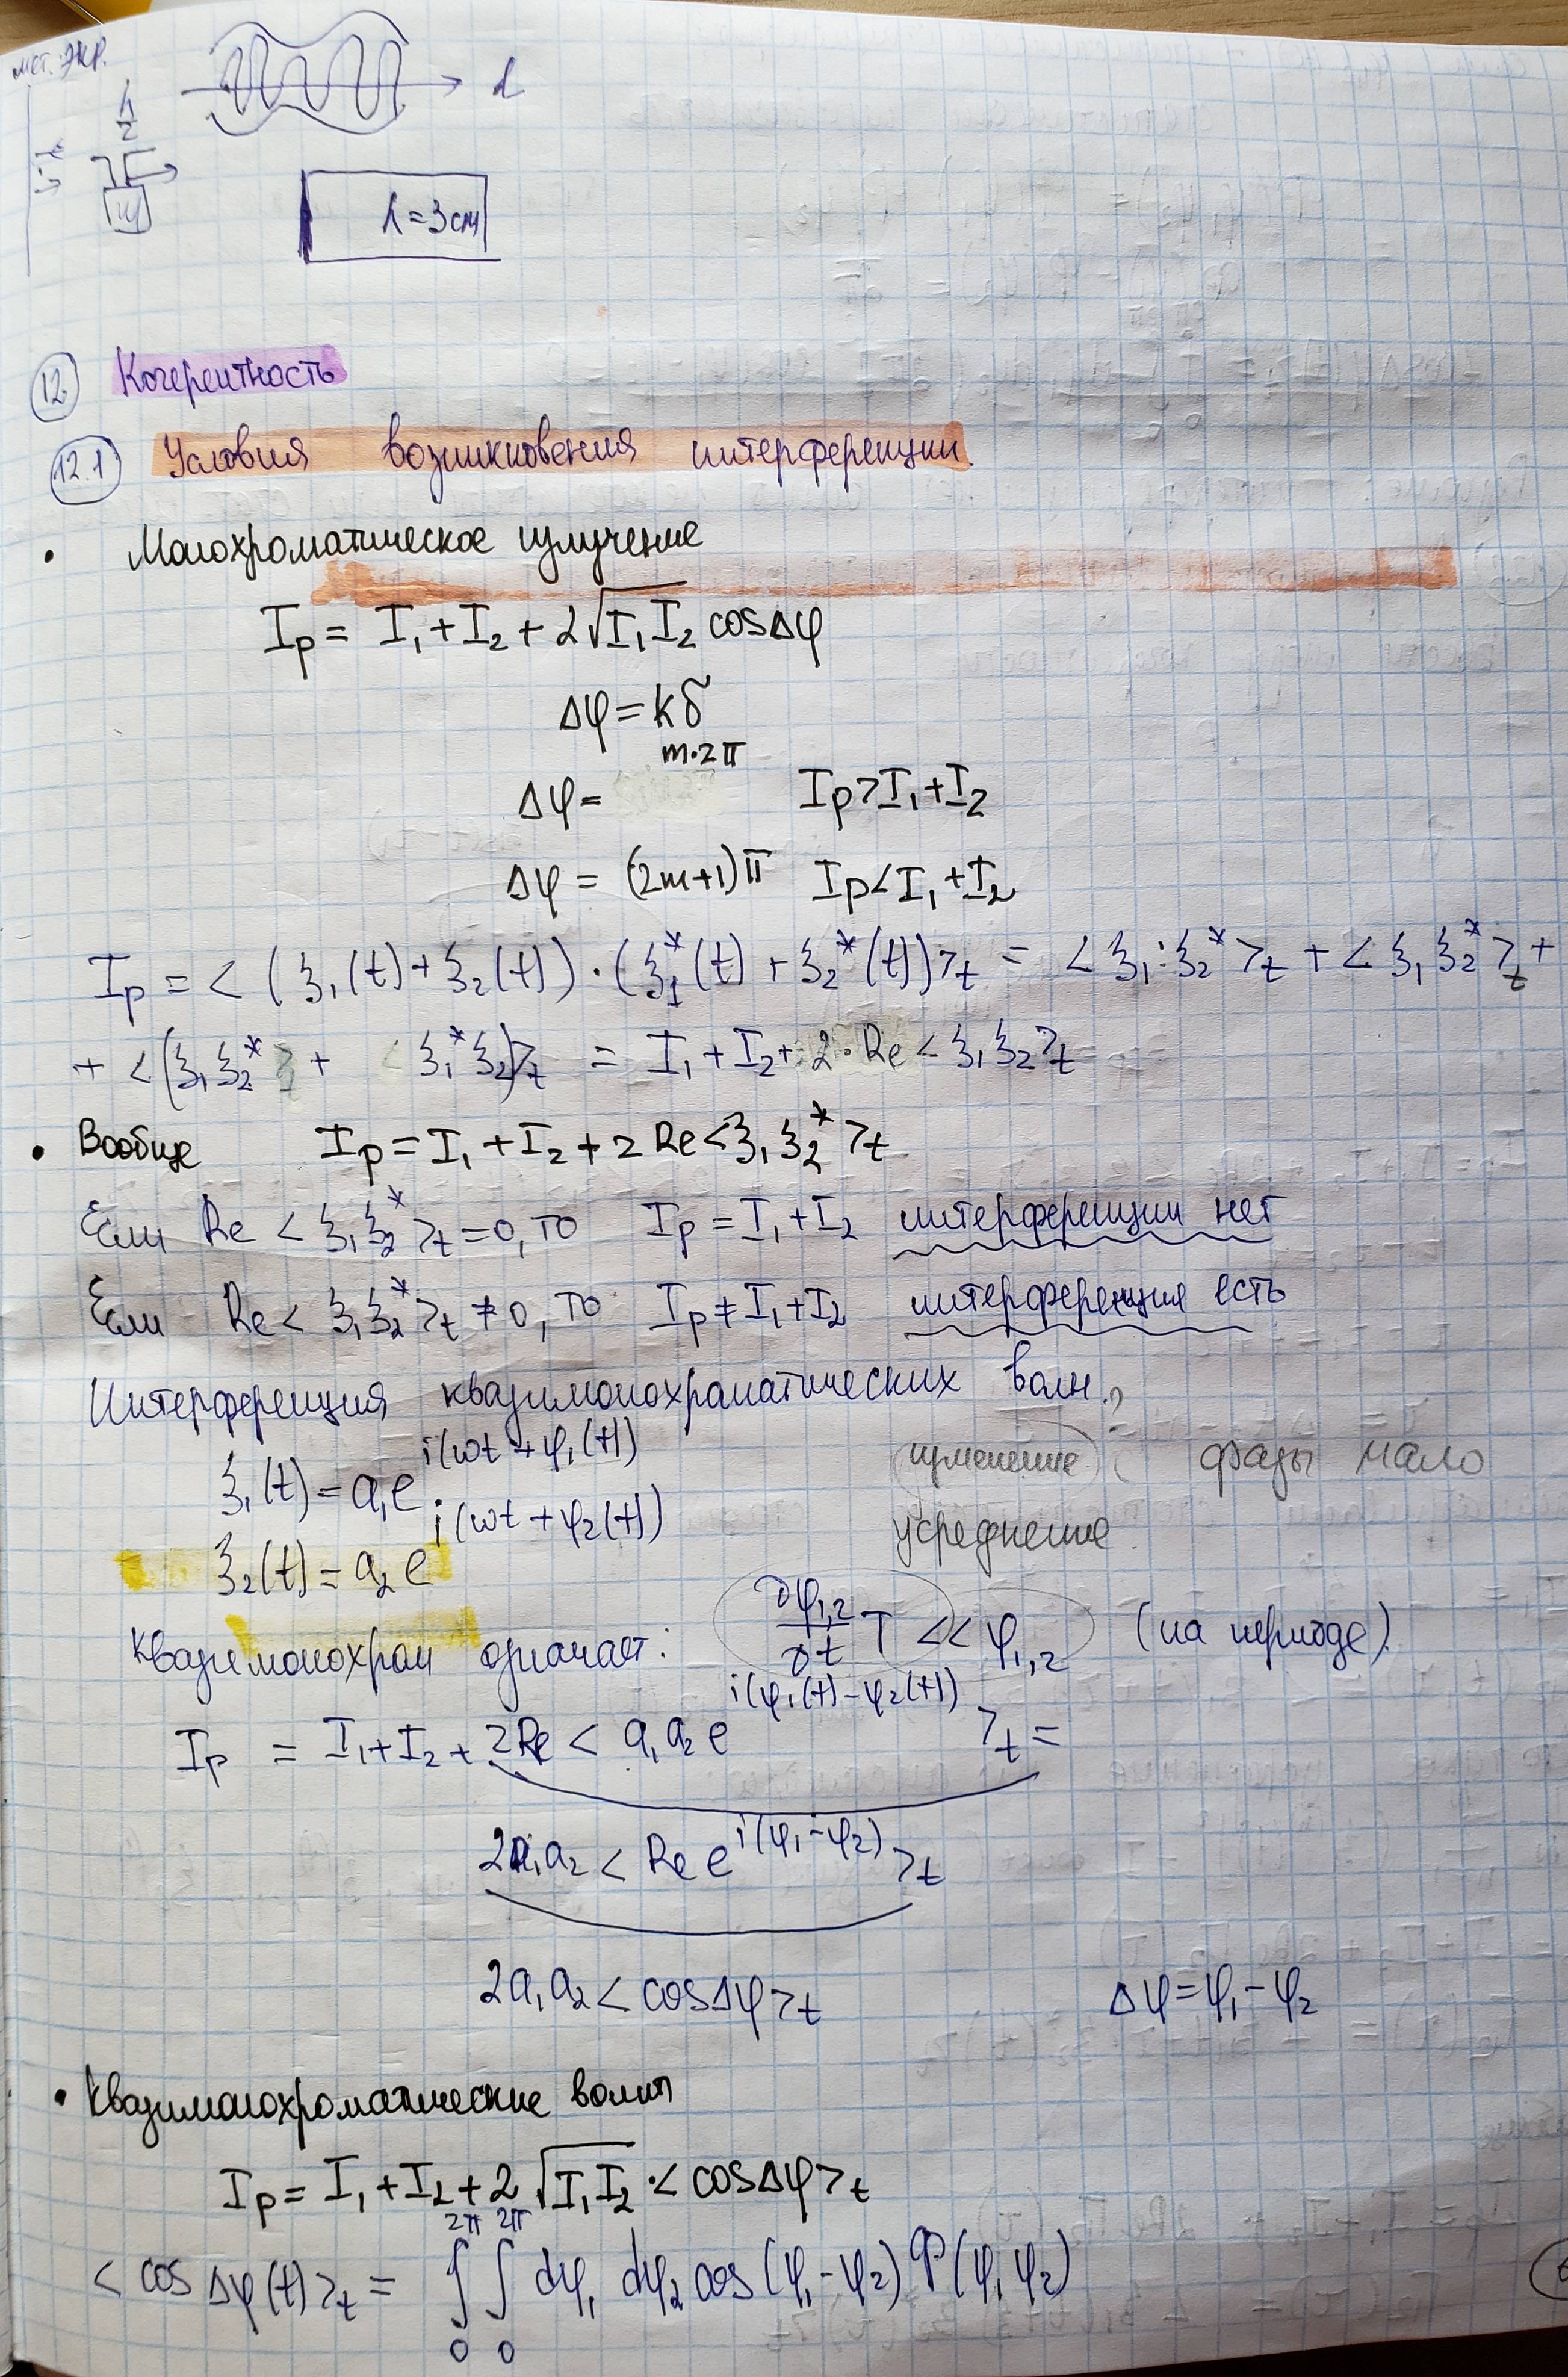 мет. экр.
λ/2
L
λ=3см
12. Когерентность
12.1 Условия возникновения интерференции.
• Монохроматическое излучение
Iр = I₁ + I₂ + 2√(I₁I₂) cosΔφ
Δφ = kδ
Δφ = m·2π Iр > I₁ + I₂
Δφ = (2m+1)π Iр < I₁ + I₂
Iр = <(ξ₁(t) + ξ₂(t))·(ξ₁*(t) + ξ₂*(t))>t = <ξ₁·ξ₂*>t + <ξ₁ξ₂*>t +
+ <(ξ₁ξ₂* + ξ₁*ξ₂)>t = I₁ + I₂ + 2·Re<ξ₁ξ₂>t
• Вообще Iр = I₁ + I₂ + 2 Re<ξ₁ξ₂*>t
Если Re<ξ₁ξ₂*>t = 0, то Iр = I₁ + I₂ интерференции нет
Если Re<ξ₁ξ₂*>t ≠ 0, то Iр ≠ I₁ + I₂ интерференция есть
Интерференция квазимонохроматических волн.
изменение фазы мало
ξ₁(t) = a₁e^{i(ωt + φ₁(t))}
усреднение
ξ₂(t) = a₂e^{i(ωt + φ₂(t))}
Квазимонохром означает: ∂φ₁,₂/∂t T << φ₁,₂ (на периоде)
Iр = I₁ + I₂ + 2Re<a₁a₂e^{i(φ₁(t) − φ₂(t))}>t =
2a₁a₂<Re e^{i(φ₁ − φ₂)}>t
2a₁a₂<cosΔφ>t Δφ = φ₁ − φ₂
• Квазимонохроматические волны
Iр = I₁ + I₂ + 2√(I₁I₂)·<cosΔφ>t
<cosΔφ(t)>t = ∫₀^{2π} ∫₀^{2π} dφ₁ dφ₂ cos(φ₁ − φ₂) P(φ₁φ₂)